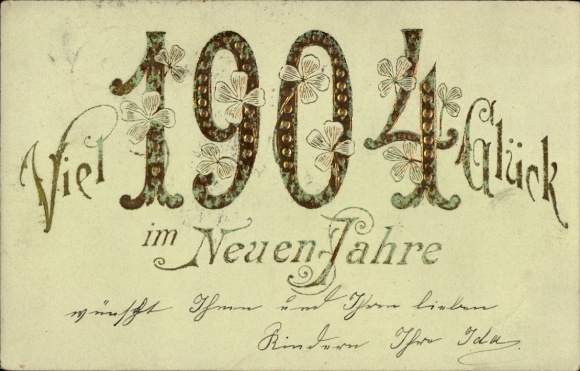 Viel 1904 Glück
im Neuen Jahre
wünscht Ihnen und Ihren lieben
Kindern Ihre Ida